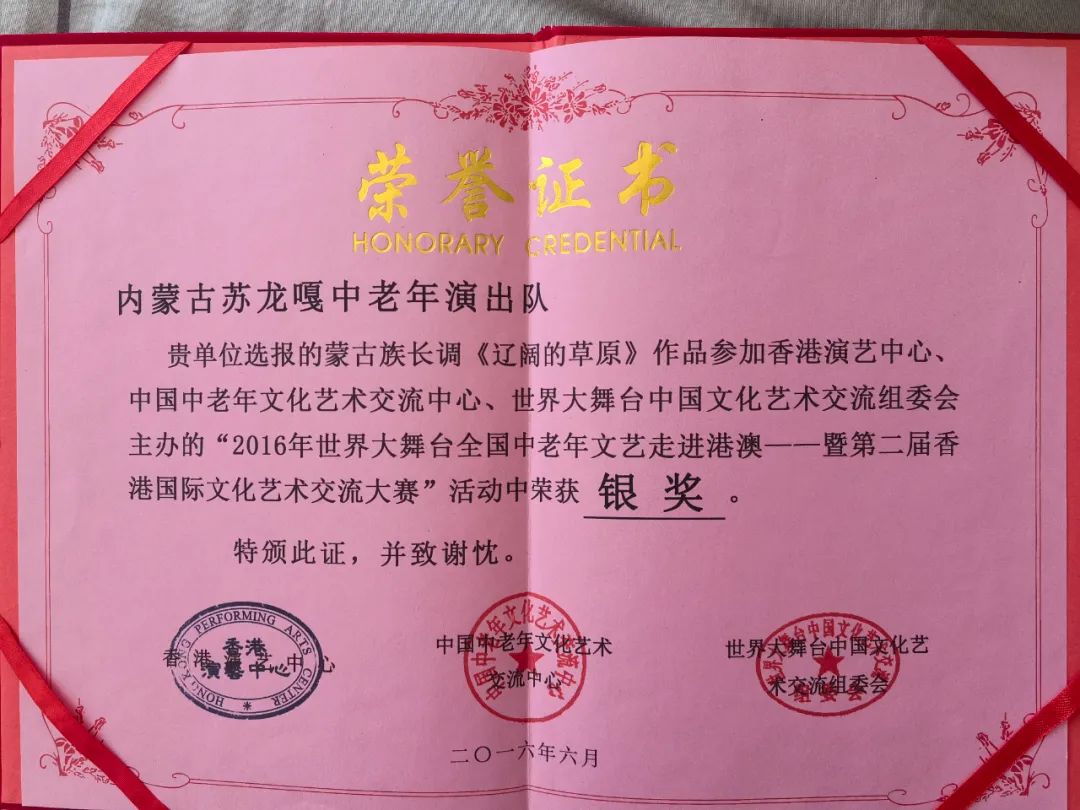 荣誉证书
HONORARY CREDENTIAL
内蒙古苏龙嘎中老年演出队
贵单位选报的蒙古族长调《辽阔的草原》作品参加香港演艺中心、
中国中老年文化艺术交流中心、世界大舞台中国文化艺术交流组委会
主办的“2016年世界大舞台全国中老年文艺走进港澳——暨第二届香
港国际文化艺术交流大赛”活动中荣获 银奖 。
特颁此证，并致谢忱。
香港演艺中心
HONG KONG PERFORMING ARTS CENTER
香港
演藝中心
中国中老年文化艺术
交流中心
中国中老年文化艺术交流中心
世界大舞台中国文化艺
术交流组委会
世界大舞台中国文化艺术交流
二〇一六年六月